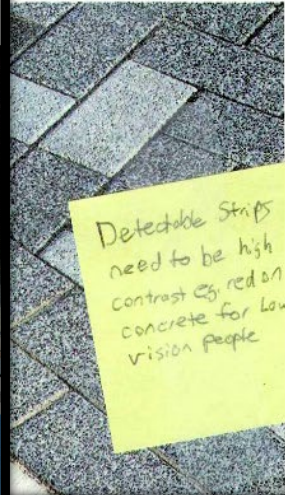 Detectable Strips
need to be high
contrast eg. red on
concrete for Low
vision people